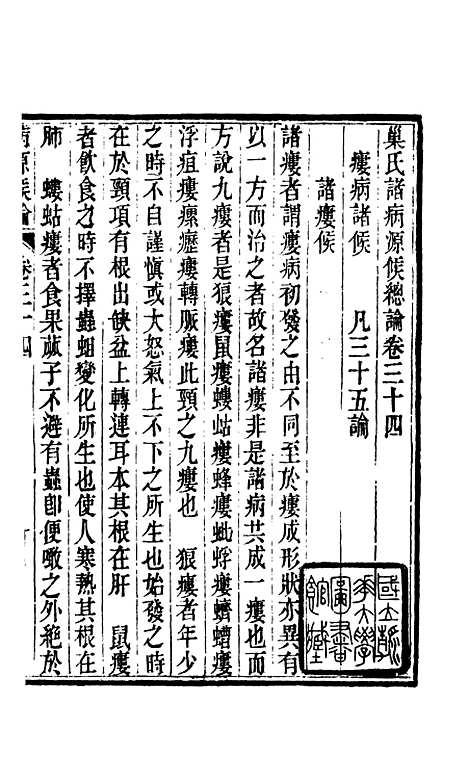 巢氏諸病源候總論卷三十四
瘻病諸候　凡三十五論
諸瘻候
諸瘻者謂瘻病初發之由不同至於瘻成形狀亦異有
以一方而治之者故名諸瘻非是諸病共成一瘻也而
方說九瘻者是狼瘻鼠瘻螻蛄瘻蜂瘻蚍蜉瘻蠐螬瘻
浮疽瘻瘰癧瘻轉脈瘻此頸之九瘻也　狼瘻者年少
之時不自謹愼或大怒氣上不下之所生也始發之時
在於頸項有根出缺盆上轉連耳本其根在肝　鼠瘻
者飮食之時不擇蟲蛆變化所生也使人寒熱其根在
肺　螻蛄瘻者食果蓏子不避有蟲卽便噉之外絶於
病源候論　卷三十四
國立北平大學
圖書館藏